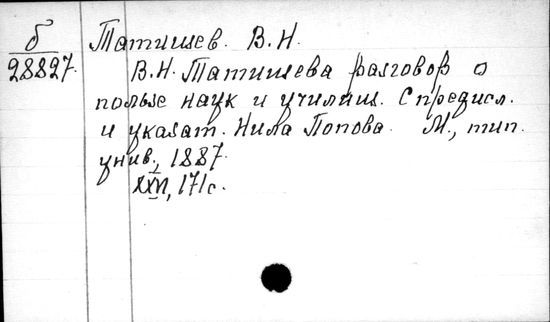 б
28827.
Татищев. В.Н.
В.Н. Татищева разговор о
пользе наук и училищ. С предисл.
и указат. Нила Попова. М., тип.
унив., 1887.
XXVI, 171с.